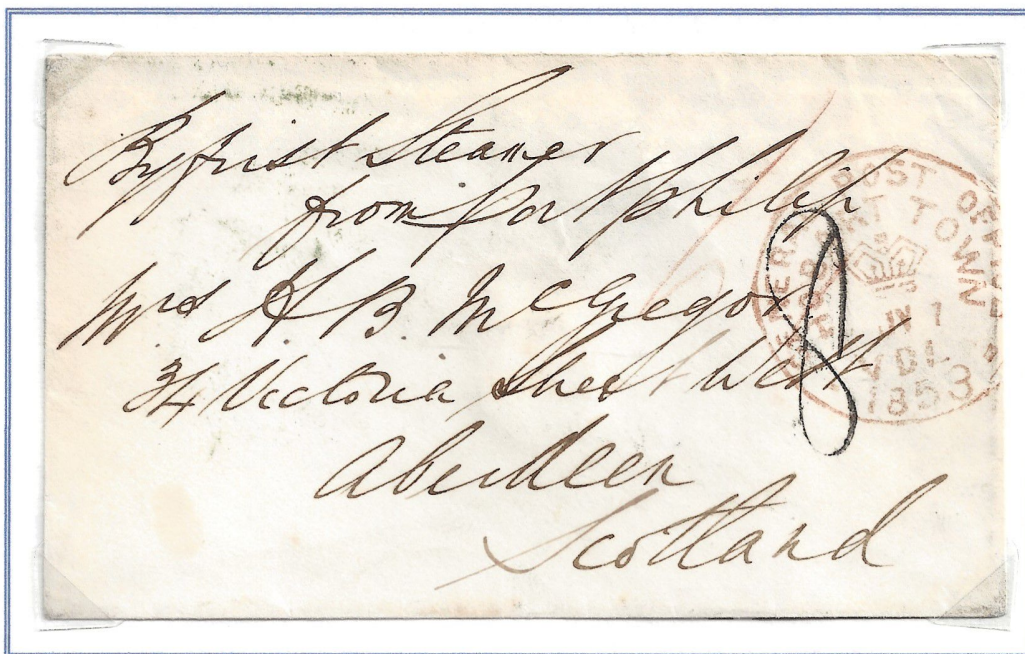 By first Steamer
from Port Philip
Mrs H. B. McGregor
34 Victoria Street West
Aberdeen
Scotland
8
POST OFFICE
TOWN
1
VDL
1853